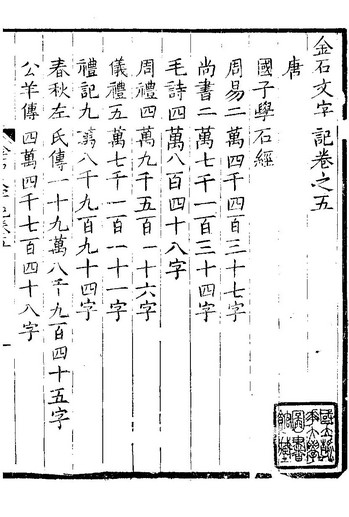 金石文字記卷之五
唐
國子學石經
周易二萬四千四百三十七字
尚書二萬七千一百三十四字
毛詩四萬八百四十八字
周禮四萬九千五百一十六字
儀禮五萬七千一百一十一字
禮記九萬八千九百九十四字
春秋左氏傳一十九萬八千九百四十五字
公羊傳四萬四千七百四十八字